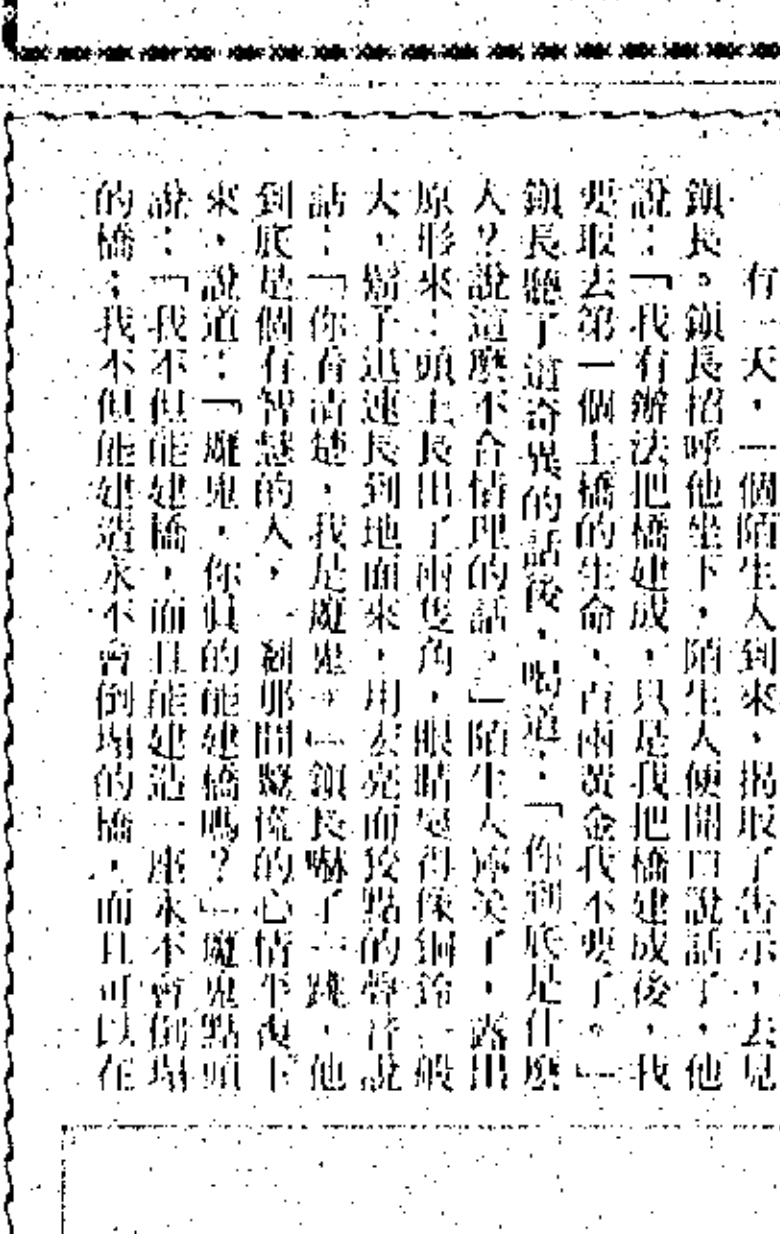 有一天，一個陌生人到來，揭取了告示，去見
鎮長。鎮長招呼他坐下，陌生人便開口說話了，他
說：「我有辦法把橋建成，只是我把橋建成後，，我
要取去第一個上橋的生命，百兩黃金我不要了。」
鎮長聽了這奇異的話後，喝道：「你到底是什麼
人？說這麼不合情理的話。」陌生人獰笑了，露出
原形來：頭上長出了兩隻角，眼睛瞪得像銅鈴一般
大，鬍子迅速長到地面來，用宏亮而狡黠的聲音說
話：「你看清楚，我是魔鬼。」鎮長嚇了一跳，他
到底是個有智慧的人，一剎那間驚慌的心情平復下
來，說道：「魔鬼，你真的能建橋嗎？」魔鬼點頭
說：「我不但能建橋，而且能建造一座永不會倒塌
的橋；我不但能建造永不會倒塌的橋，而且可以在